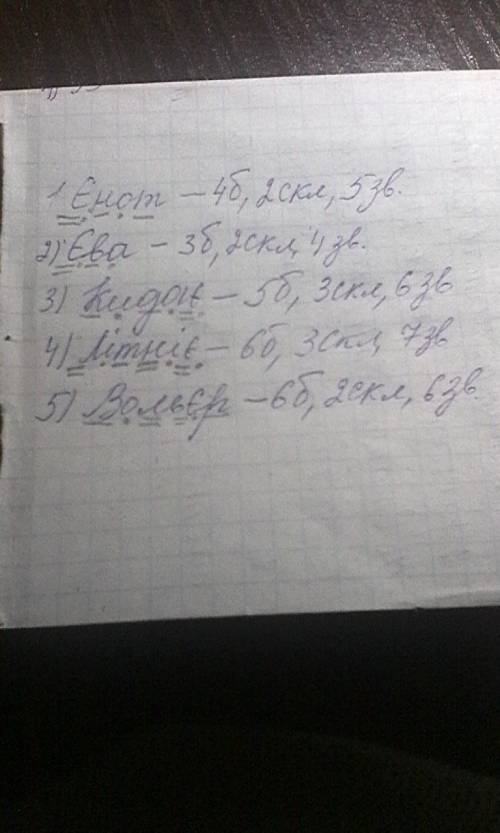 1 Єнот – 4б, 2скл, 5зв.
2) Єва – 3б, 2скл, 4зв.
3) Кидає – 5б, 3скл, 6зв
4) Літніє – 6б, 3скл, 7зв
5) Вольєр – 6б, 2скл, 6зв.